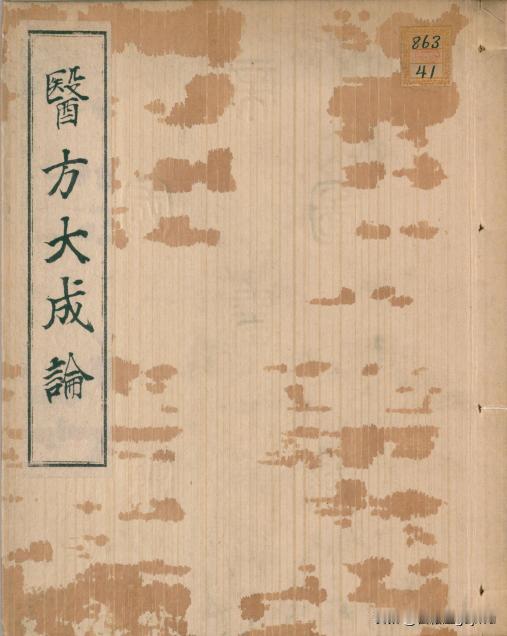 醫方大成論
863
41